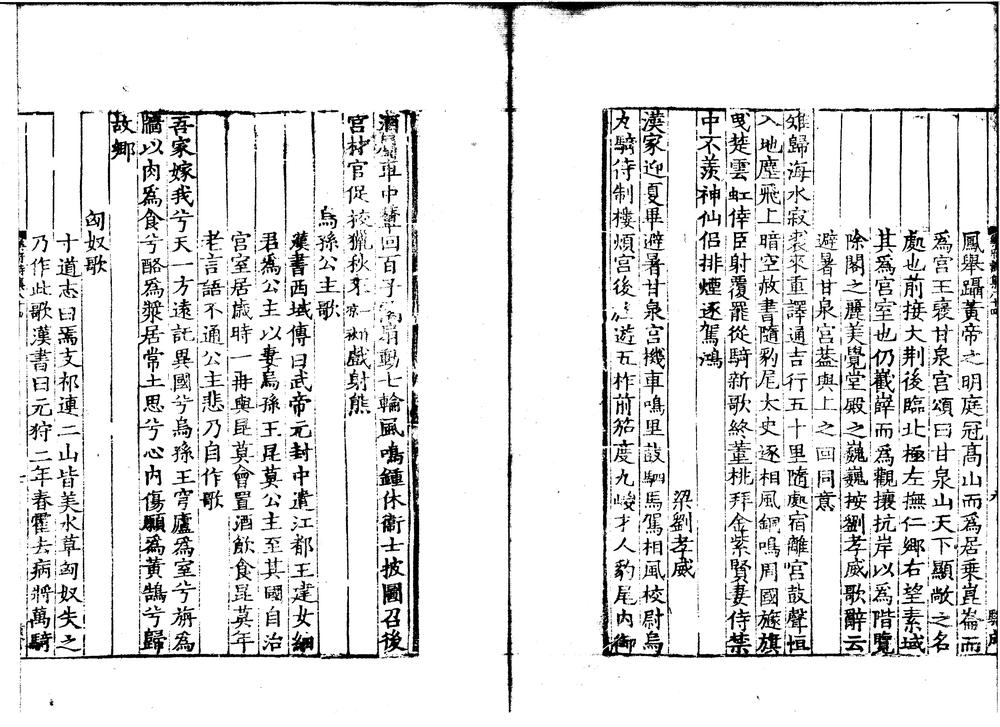 鳳舉躡黃帝之明庭冠高山而爲居乗崑崙而
爲宮王襃甘泉宮頌曰甘泉山天下顯敞之名
處也前接大荆後臨北極左撫仁鄉右望素域
其爲宮室也仍嶻嶭而爲觀攘抗岸以爲階覽
除閣之麗美覺堂殿之巍巍按劉孝威歌辭云
避暑甘泉宮葢與上之回同意
雉歸海水寂裘來重譯通吉行五十里隨處宿離宮鼓聲恒
入地塵飛上暗空赦書隨豹尾太史逐相風銅鳴周國旞旗
曵楚雲虹倖臣射覆罷從騎新歌終董桃拜金紫賢妻侍禁
中不羨神仙侶排煙逐駕鴻
梁劉孝威
漢家迎夏畢避暑甘泉宮機車鳴里鼓駟馬駕相風校尉烏
丸騎待制樓煩宮後遊五柞前笳度九嵕才人豹尾内御
酒屬車中輦回百子扇動七輪風鳴鍾休衞士披圖召後
宮材官促校獵秋來戲射熊
烏孫公主歌
漢書西域傳曰武帝元封中遣江都王建女細
君爲公主以妻烏孫王昆莫公主至其國自治
宮室居歲時一再與昆莫會置酒飲食昆莫年
老言語不通公主悲乃自作歌
吾家嫁我兮天一方遠託異國兮烏孫王穹廬爲室兮旃爲
牆以肉爲食兮酪爲漿居常土思兮心内傷願爲黃鵠兮歸
故鄉
匈奴歌
十道志曰焉支祁連二山皆美水草匈奴失之
乃作此歌漢書曰元狩二年春霍去病將萬騎